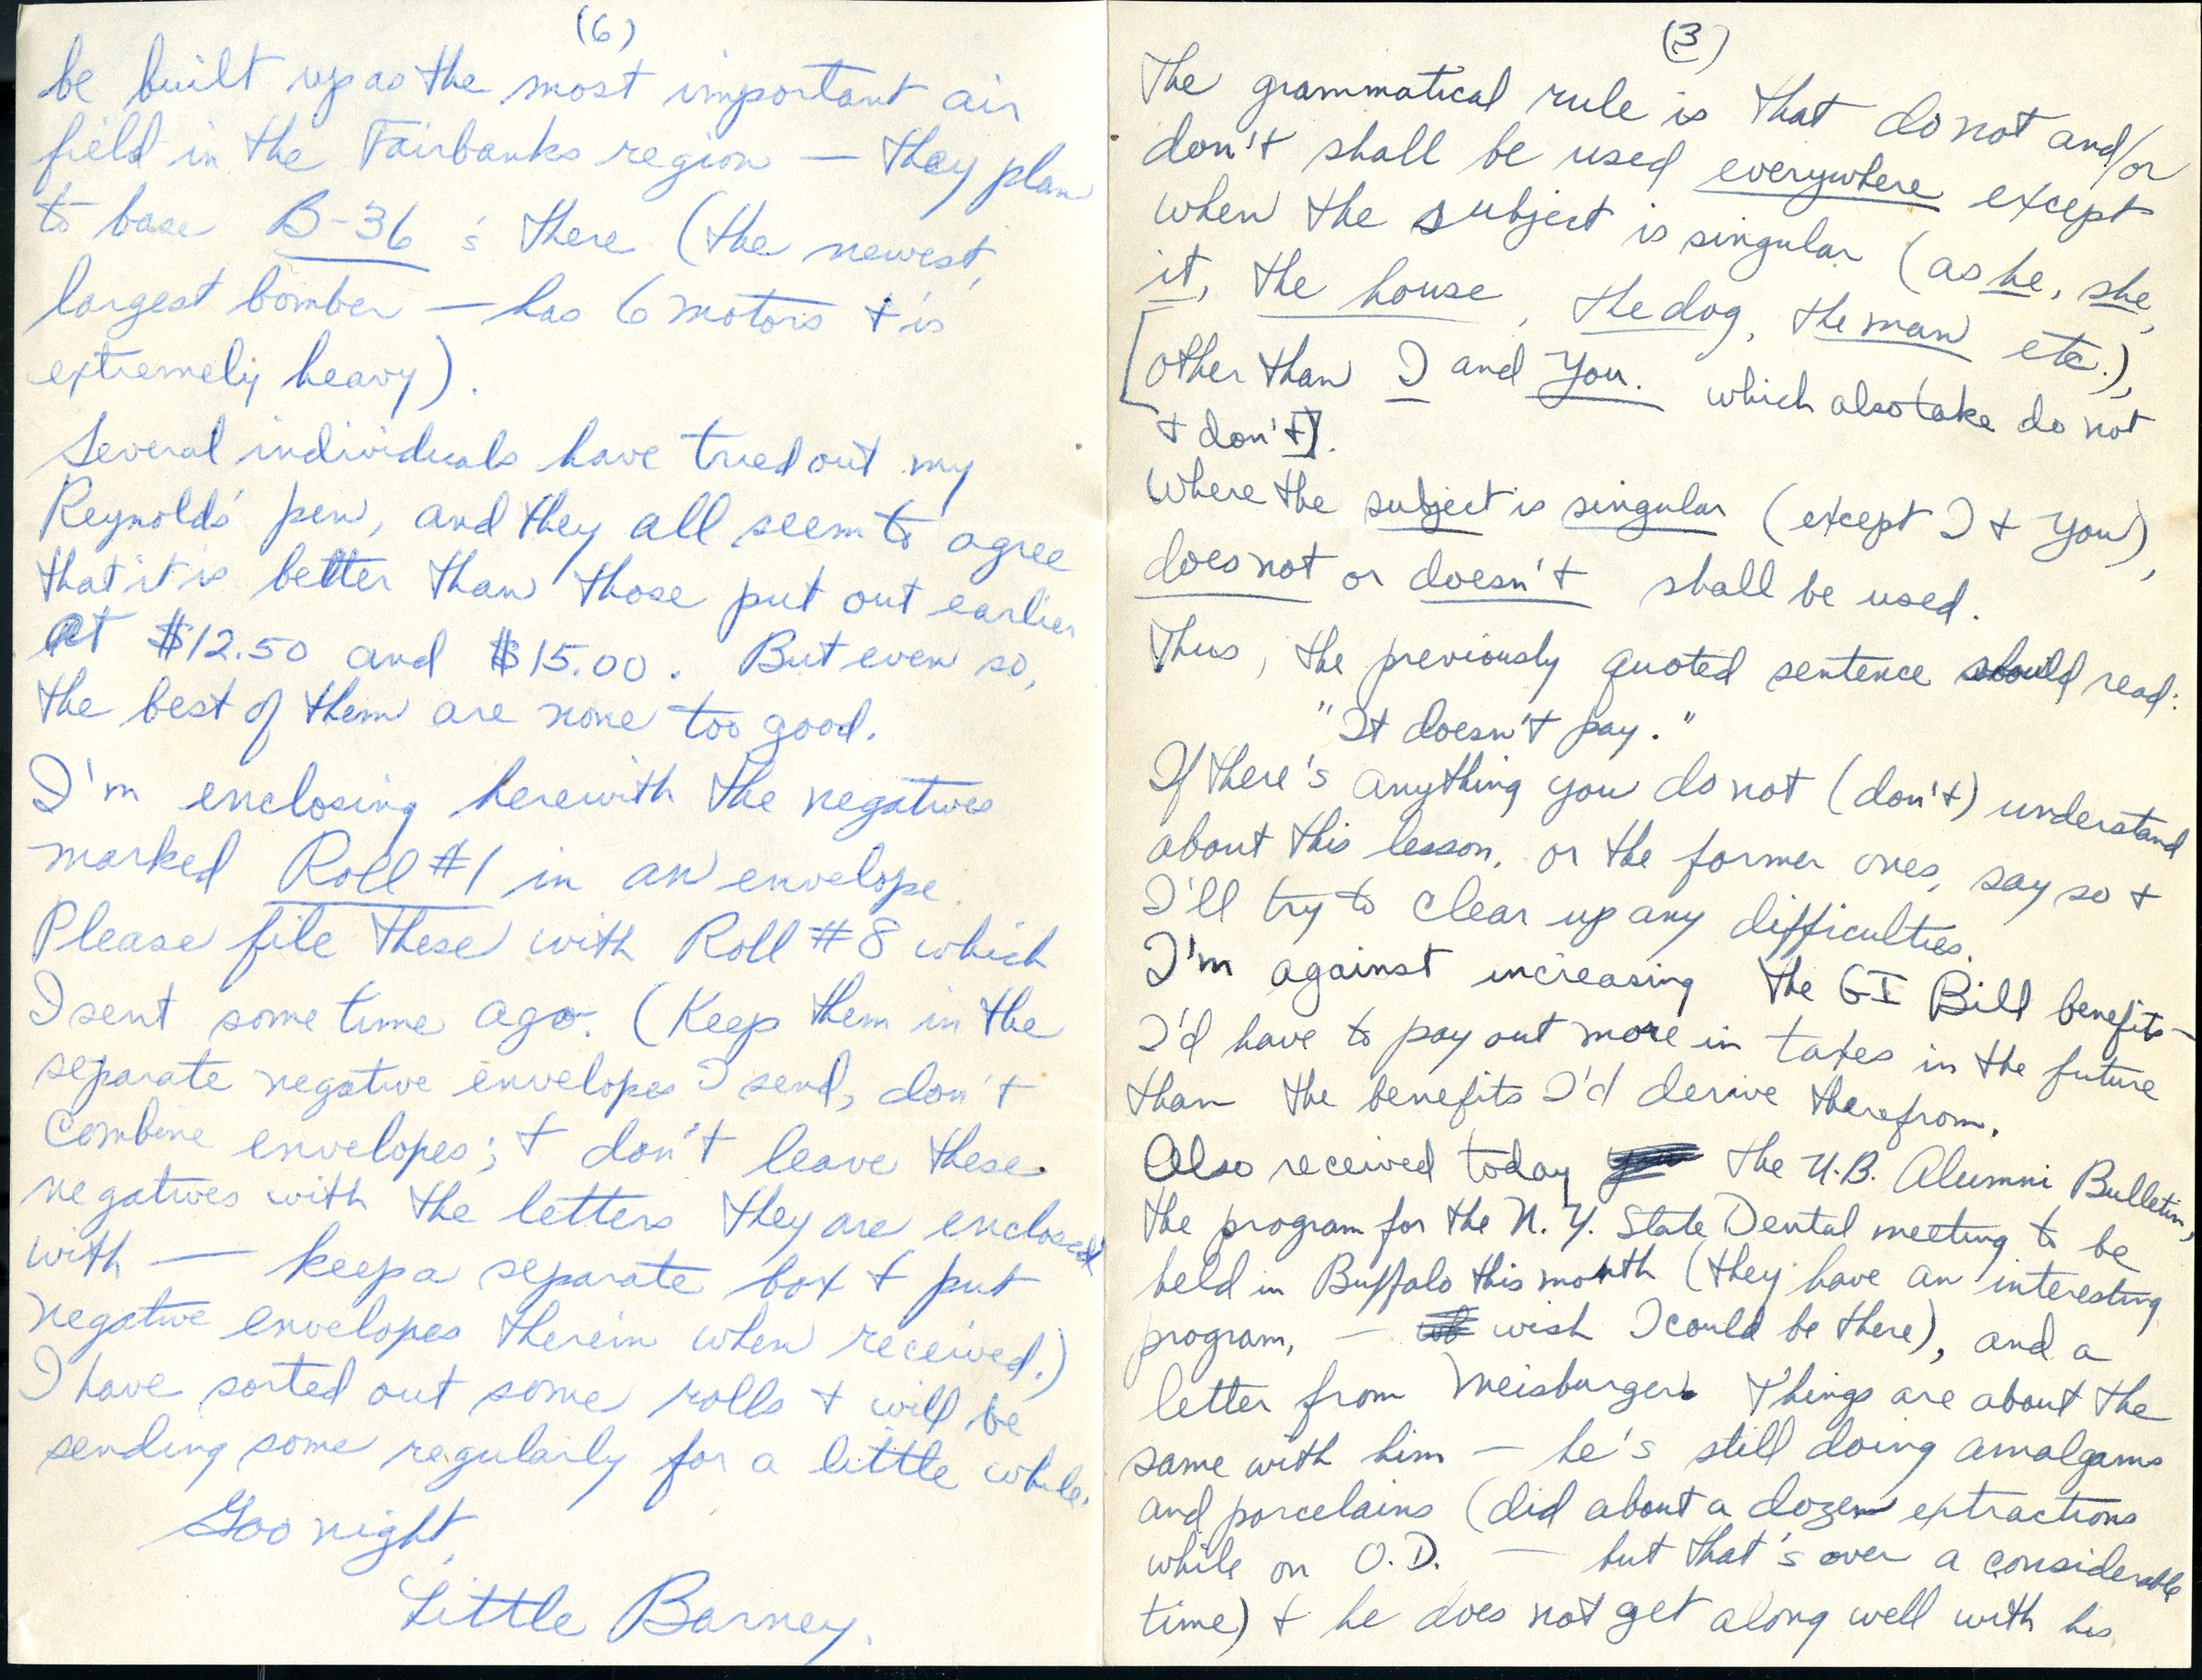 (6)
be built up as the most important air
field in the Fairbanks region — they plan
to base B-36 's there (the newest,
largest bomber — has 6 motors & is
extremely heavy).
Several individuals have tried out my
Reynolds' pen, and they all seem to agree
that it is better than those put out earlier
at $12.50 and $15.00. But even so,
the best of them are none too good.
I'm enclosing herewith the negatives
marked Roll #1 in an envelope.
Please file these with Roll #8 which
I sent some time ago. (Keep them in the
separate negative envelopes I send, don't
combine envelopes; & don't leave these
negatives with the letters they are enclosed
with — keep a separate box & put
negative envelopes therein when received.)
I have sorted out some rolls & will be
sending some regularly for a little while.
Goo night,
Little Barney.
(3)
The grammatical rule is that do not and/or
don't shall be used everywhere except
when the subject is singular (as he, she,
it, the house, the dog, the man etc.),
[other than I and you. which also take do not
& don't].
Where the subject is singular (except I & you),
does not or doesn't shall be used.
Thus, the previously quoted sentence should read:
"It doesn't pay."
If there's anything you do not (don't) understand
about this lesson, or the former ones, say so &
I'll try to clear up any difficulties.
I'm against increasing the GI Bill benefits —
I'd have to pay out more in taxes in the future
than the benefits I'd derive therefrom.
Also received today the U.B. Alumni Bulletin,
the program for the N.Y. State Dental meeting to be
held in Buffalo this month (they have an interesting
program, — wish I could be there), and a
letter from Meisburger. Things are about the
same with him — he's still doing amalgams
and porcelains (did about a dozen extractions
while on O.D. — but that's over a considerable
time) & he does not get along well with his